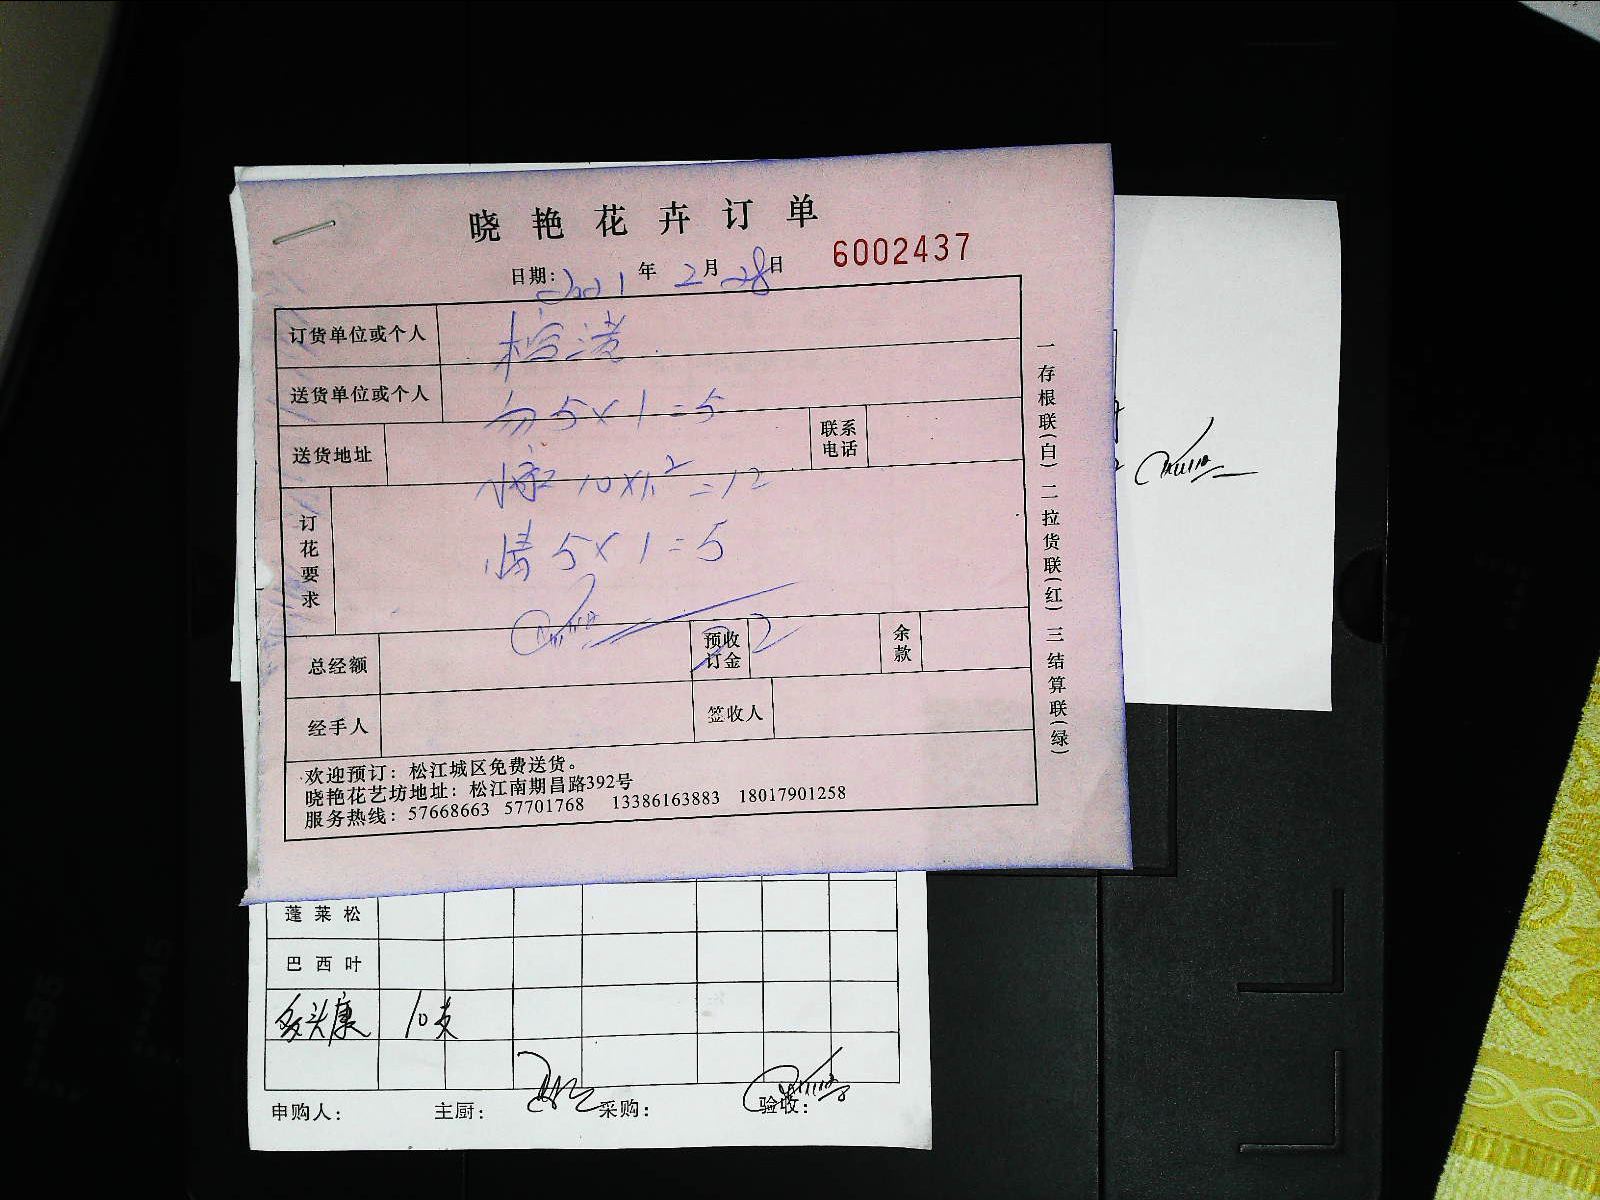 晓艳花卉订单
日期: 2021年2月28日 6002437
订货单位或个人
送货单位或个人
5×1=5
送货地址 联系电话
=12
订花要求
5×1=5
总经额 预收订金 22 余款
经手人 签收人
欢迎预订：松江城区免费送货。
晓艳花艺坊地址：松江南期昌路392号
服务热线：57668663 57701768 13386163883 18017901258
一存根联(白)二拉货联(红)三结算联(绿)
蓬莱松
巴西叶
多头康 10支
申购人： 主厨： 采购： 验收：